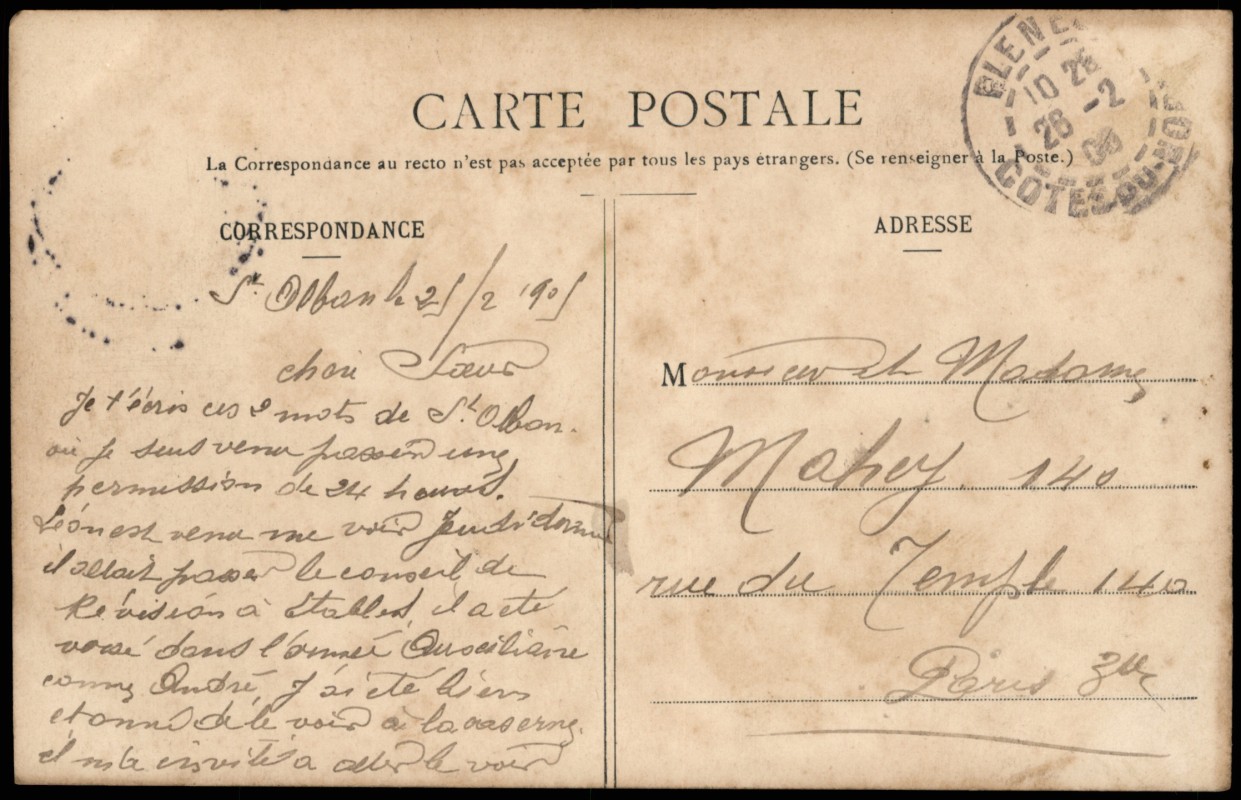 CARTE POSTALE
La Correspondance au recto n'est pas acceptée par tous les pays étrangers. (Se renseigner à la Poste.)
CORRESPONDANCE
St Alban le 25/2 1905
chere Sœur
Je t'écris ces 2 mots de St Alban
où je suis venu passer une
permission de 24 heures.
Léon est venu me voir
il allait passer le conseil de
Révision à Etables, il a été
dans l'armée Auxiliaire
comme André, J'ai été bien
étonné de le voir à la caserne.
il m'a invité a aller le voir
ADRESSE
Monsieur et Madame
Mahey. 140
rue du Temple 140
Paris 3me
PLENE
10 25
26 -2
COTES-DU-NORD